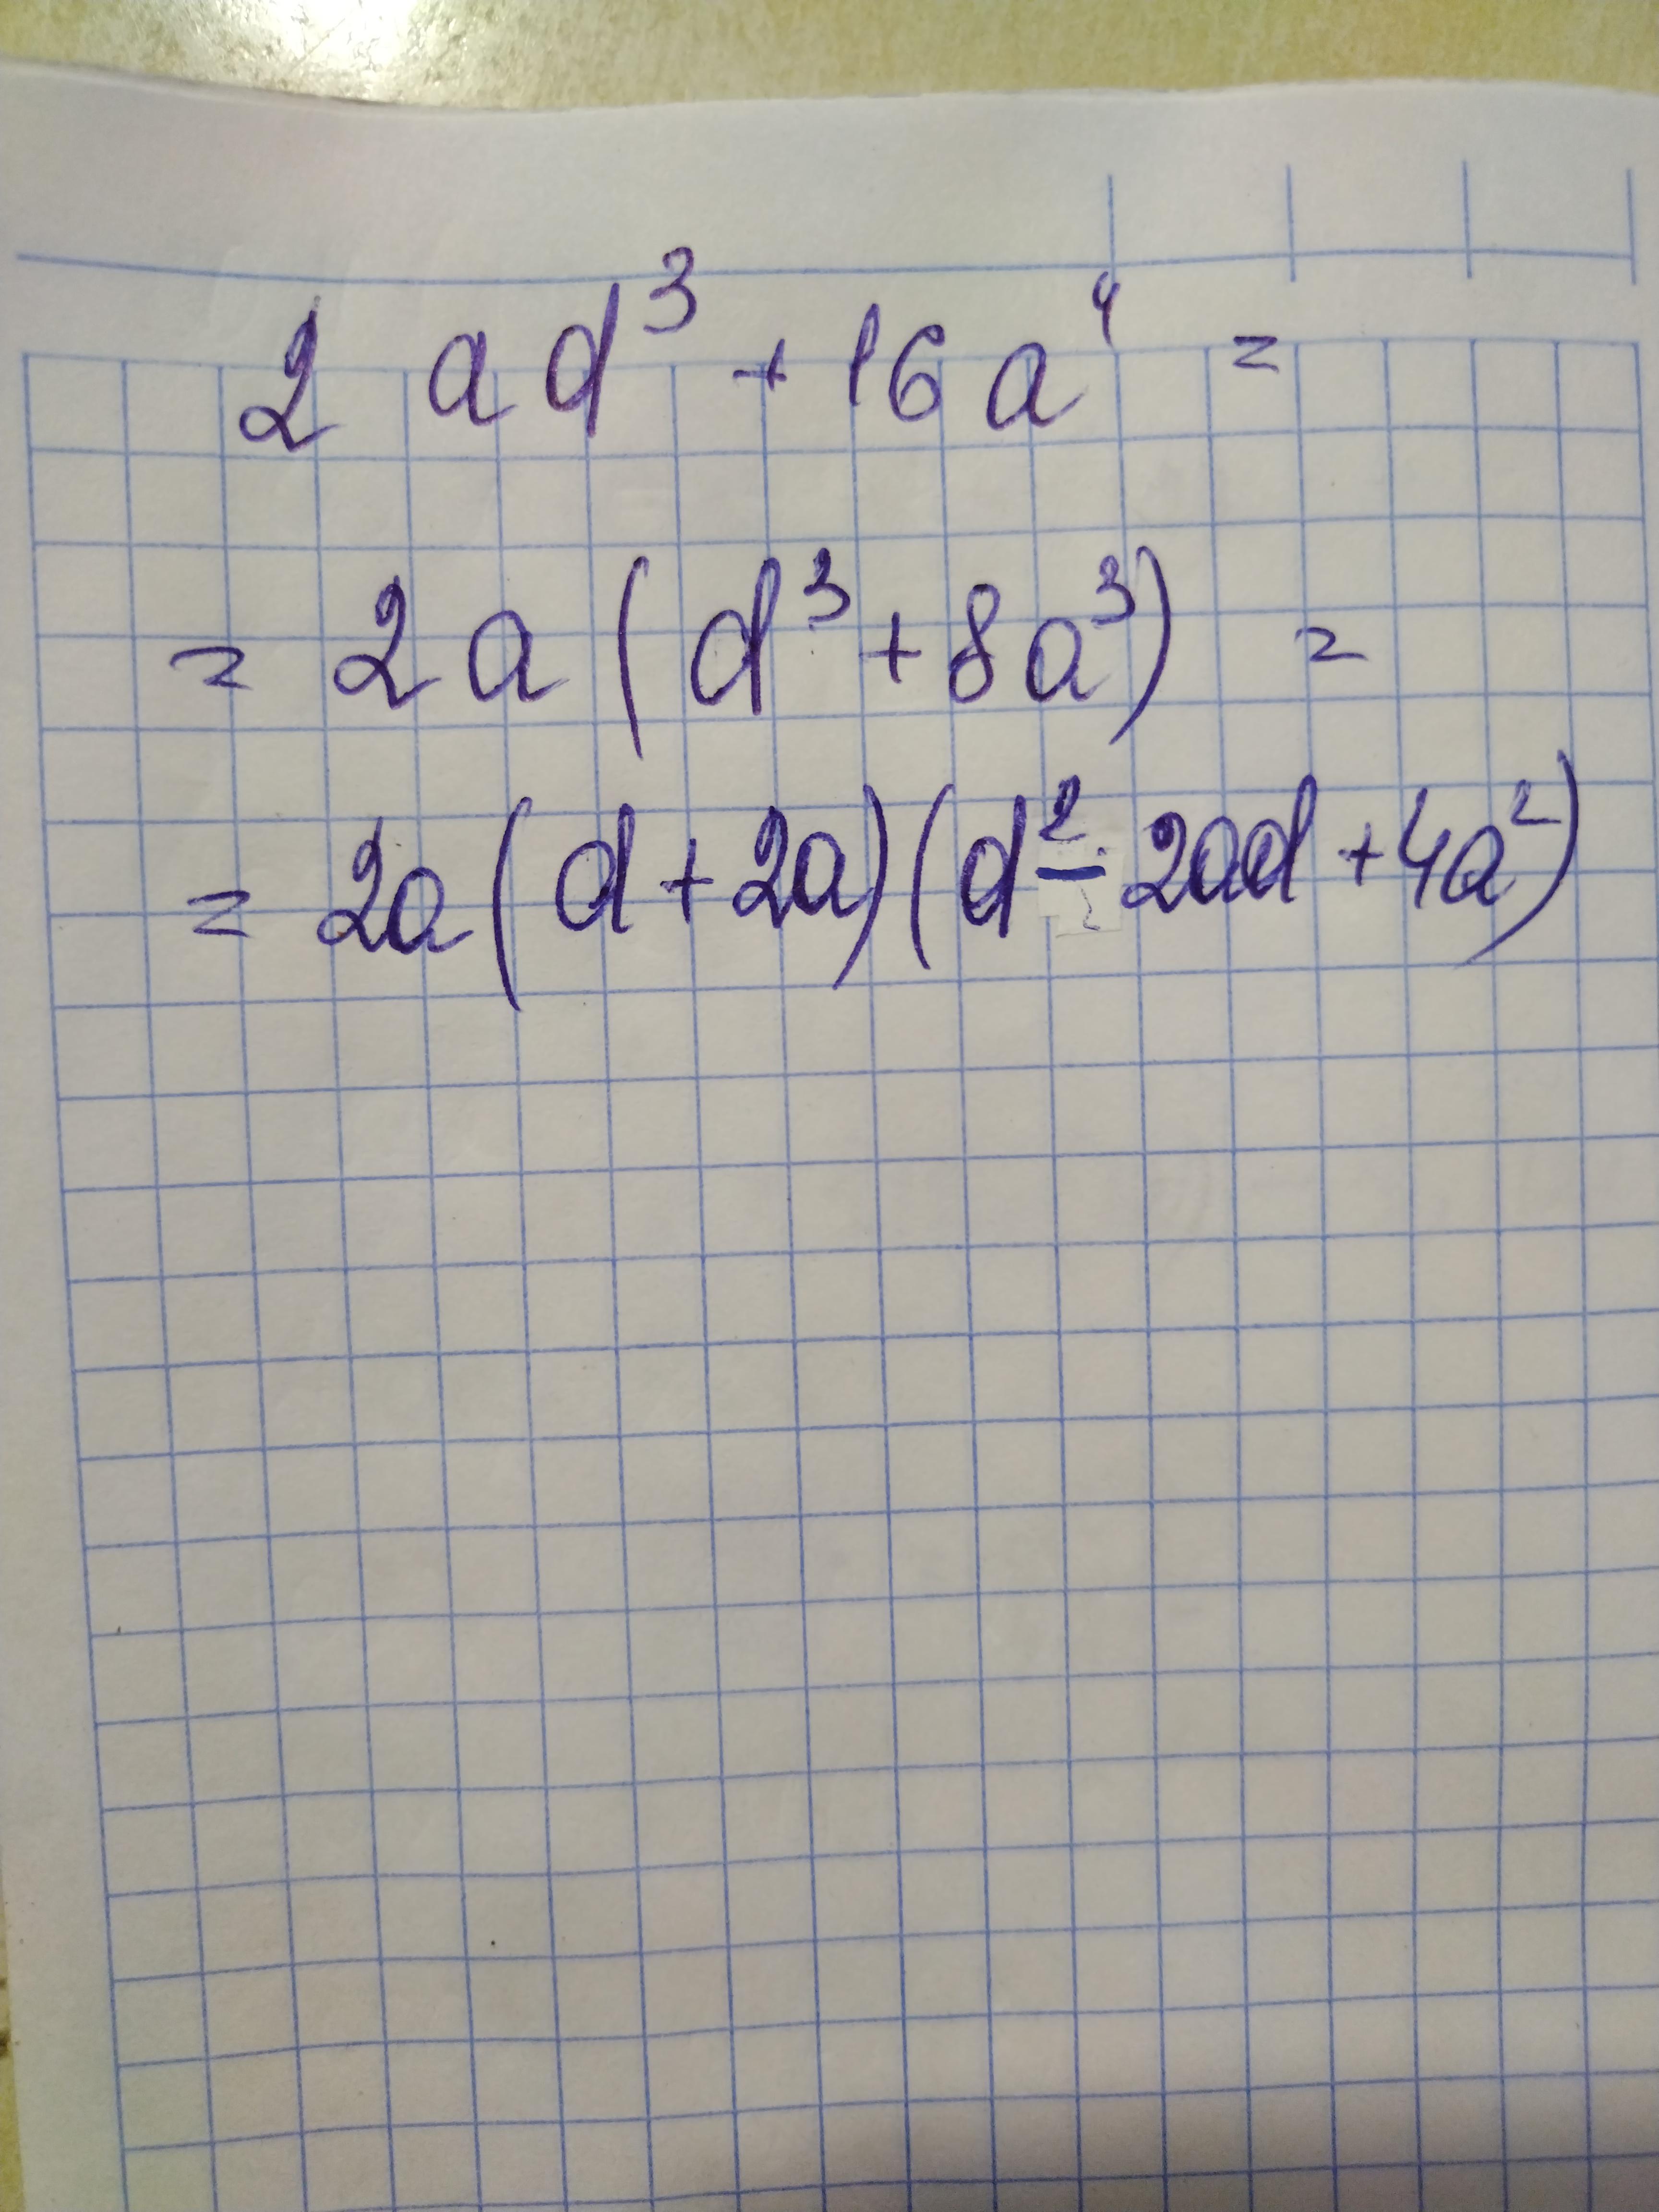 2ad³ + 16a⁴ =
= 2a(d³ + 8a³) =
= 2a(d + 2a)(d² - 2ad + 4a²)